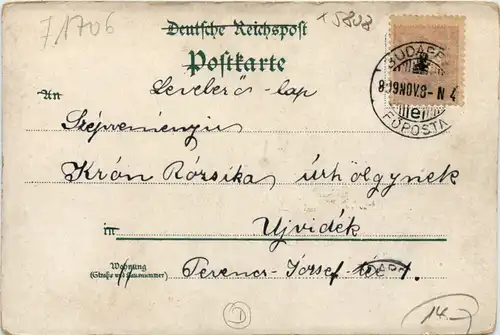 71706
+5808
Deutsche Reichspost
Postkarte
Levelező-lap
An
BUDAPEST
899 NOV. 8 - N 4
FŐPOSTA
Krón Rózsika úrhölgynek
in
Ujvidék
Wohnung
(Straße und Hausnummer)
Ferencz-József-tér 1.
D
14.-